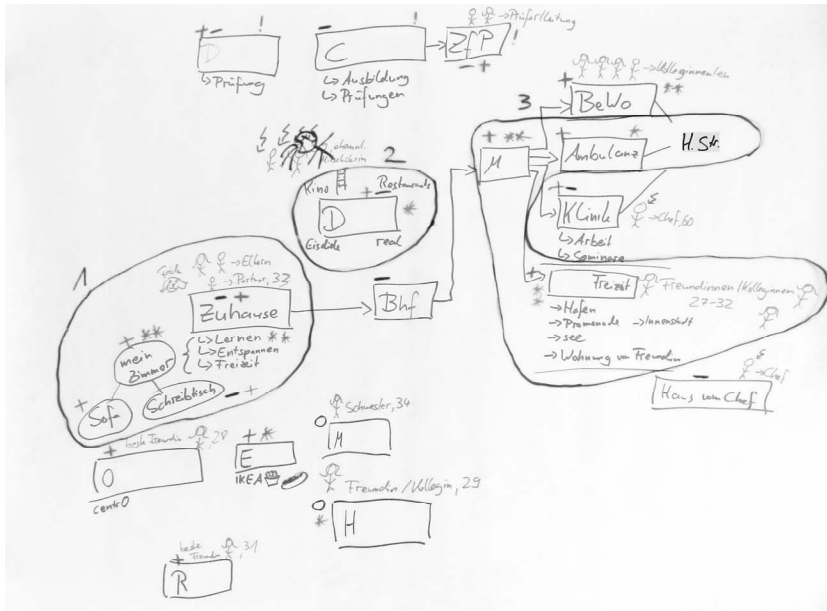 + - !
D
↳ Prüfung
- !
C
↳ Ausbildung
↳ Prüfungen
→ Prüfer/Leitung
ZfP !
- +
3
+ → Kolleginnen/en
BeWo **
+ **
M
+ *
Ambulanz
H. Str.
+ -
Klinik
→ Chef, 60
↳ Arbeit
↳ Seminare
+
Freizeit
* *
Freundinnen/Kolleginnen
27-32
→ Hafen
→ Promenade → Innenstadt
→ See
→ Wohnung von Freundin
-
→ Chef
Haus vom Chef
2
ehemal.
Kino Restaurants
+ -
D *
Eisdiele real
-
Bhf
1
→ Eltern
→ Partner, 33
- +
Zuhause
↳ Lernen **
↳ Entspannen
↳ Freizeit
+ **
mein
Zimmer
+
Sofa
Schreibtisch
- +
+ beste Freundin, 28
O
centrO
+ *
E
IKEA
Schwester, 34
O
M
Freundin/Kollegin, 29
O
*
H
beste
Freundin, 31
+
R